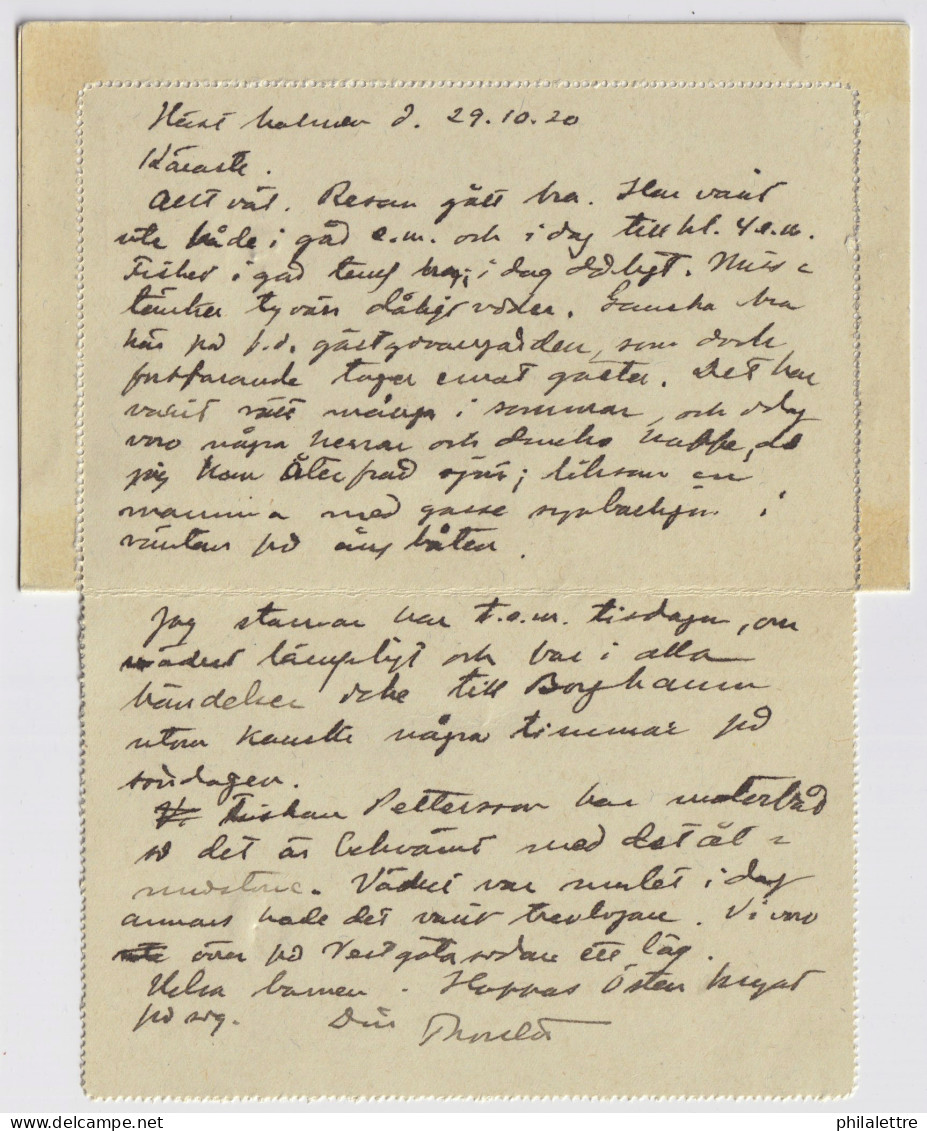 Hästholmen d. 29.10.20
Käraste.
Allt väl. Resan gått bra. Har varit
ute både i går e.m. och i dag till kl. 4 e.m.
Fisket i går bra; i dag dåligt. Miss=
tänker tyvärr dåligt väder. Ganska bra
här på f.d. gästgivargården, som dock
fortfarande tager emot gäster. Det har
varit rätt många i sommar, och i dag
voro några herrar och drucko kaffe, då
jag kom åter från sjön; liksom en
mamma med gosse i
väntan på ångbåten.
Jag stannar här t.o.m. tisdagen, om
vädret lämpligt och far i alla
händelser icke till Borghamn
utom kanske några timmar på
söndagen.
Fiskare Pettersson har motorbåd
så det är bekvämt med det al=
. Vädret var mulet i dag
annars hade det varit trevligare. Vi voro
över på Vestgötasidan ett tag.
Helsa barnen. Hoppas Östen kryat
på sig. Din
philalettre